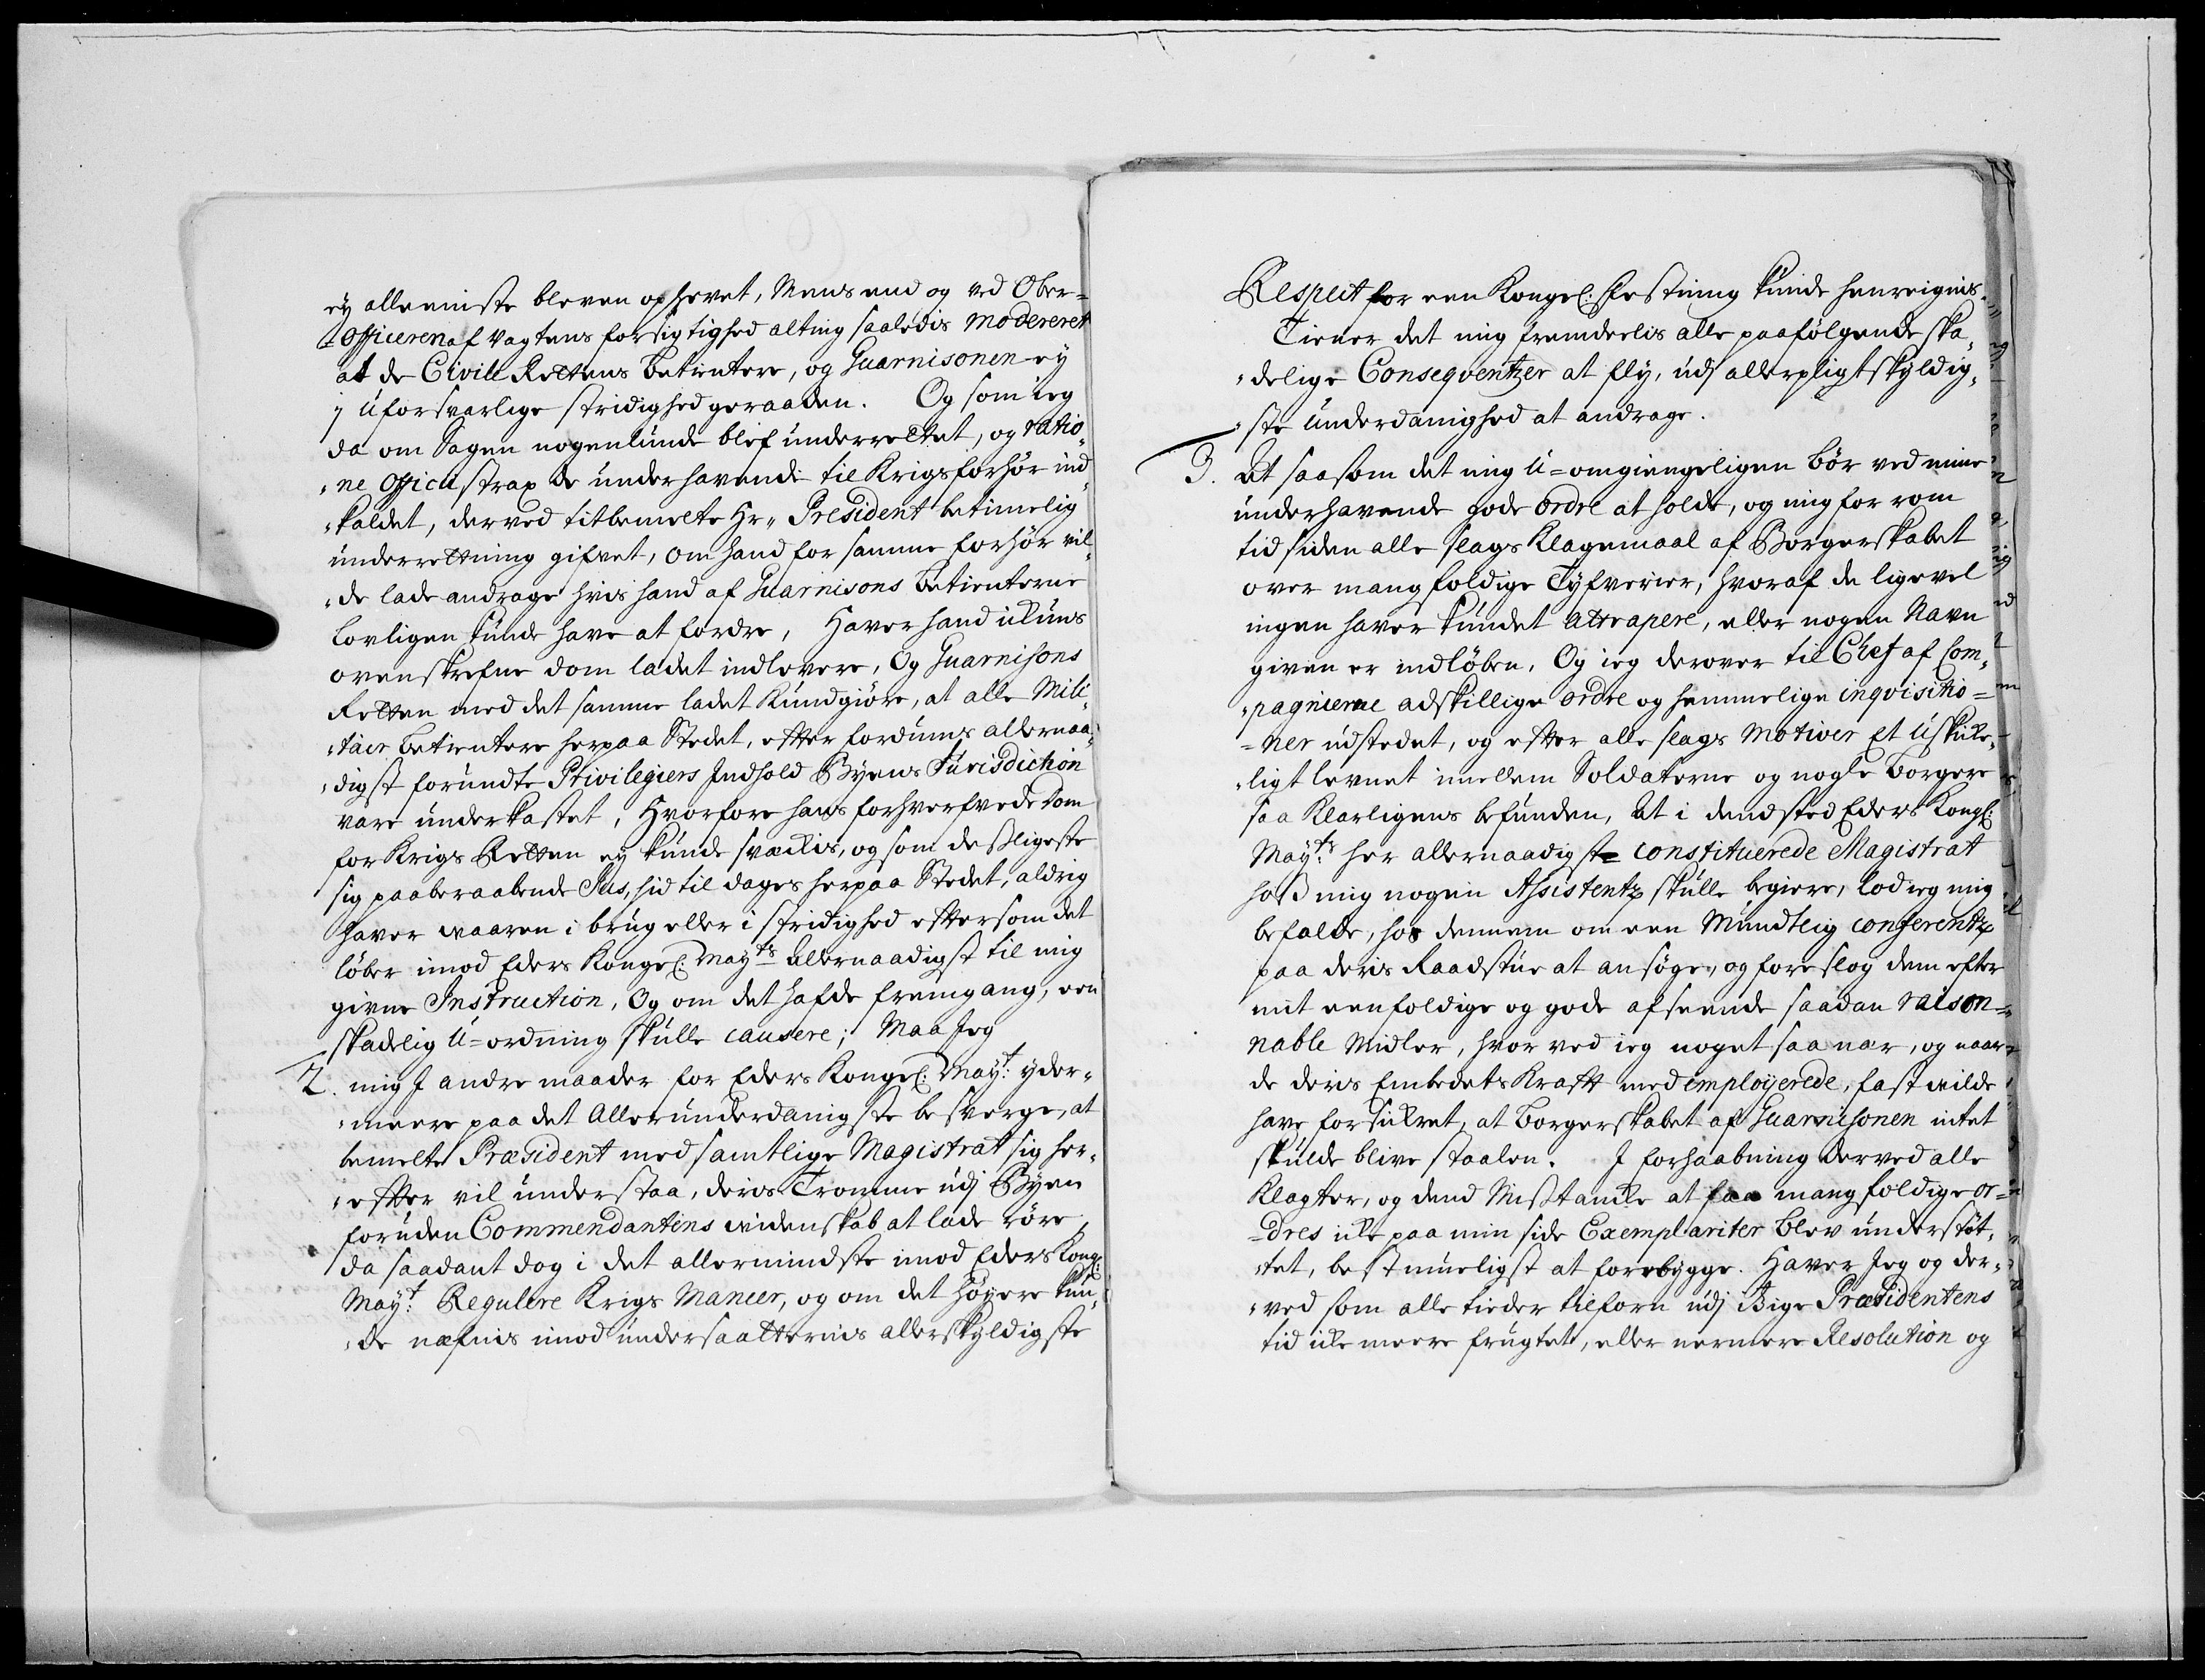 ey alleeniste bleven ophevet, Mens end og ved Ober=
=Officeren af Vagtens forsigtighed alting saaledis modereret
at de Civill Rettens betientere, og Guarnisonen ey
j uforsvarlige stridighed geraaden. Og som ieg
da om Sagen nogenlunde blef underrettet, og ratio„
„ne Officii strax de underhavende til Krigsforhör ind„
„kaldet, derved titbemelte Hr„ President betimelig
underrettning gifvet, om hand for samme forhör vil„
„de lade andrage hvis hand af Guarnisons betienterne
lovligen kunde have at fordre, Haver hand ickuns
ovenskrefne dom ladet indlevere, Og Guarnisons
Retten med det samme ladet Kundgiöre, at alle Mili„
„tair betientere herpaa Stedet, efter fordums allernaa„
„digst forundte Privilegiers Indhold Byens Jurisdiction
vare underkastet, Hvorfore hans forhverfvede dom
for Krigs Retten ey kunde svækkis, og som desligeste
sig paaberaabende Jus, hid til dags herpaa Stedet, aldrig
haver waaren i brug eller i stridighed eftersom det
löber imod Eders Kongel: Mayts allernaadigst til mig
givne Instruction, Og om det hafde fremgang, een
skadelig U=ordning skulle causere; Maa Jeg
2. mig J andre maader for Eders Kongel: Mayt: yder„
„meere paa det Allerunderdanigste besverge, at
bemelte Præsident med samtlige Magistrat sig her„
„efter vil understaa, deris Tromme udj Byen
foruden Commendantens widenskab at lade röre,
da saadant dog i det allermindste imod Eders Kongl:
Mayt: Regulere Krigs Maneer, og om det höyere kun„
„de næfnis imod undersaatternis allerskyldigste
Respect for een Kongel: Festning kunde henreignis„
Tiener det mig fremdeelis alle paafölgende ska„
„delige Conseqventzer at fly, udj allerpligtskyldig„
„ste underdanighed at andrage.
3. At saasom det mig U=omgiengeligen bör ved mine
underhavende gode ordre at holde, og mig for rom
tid siden alle slags Klagemaal af Borgerskabet
over mangfoldige Tyfverier, hvoraf de ligevel
ingen haver kundet attrapere, eller nogen Navn
given er indlöben, Og ieg derover til Chef af Com„
„pagnierne adskillige ordre og hemmelige inqvisitio=
=ner udstedet, og efter alle slags Motiver et Uskicke„
„ligt levnet imellem Soldaterne og nogle Borgere
saa Klarligens befunden, At i dend sted Eders Kongl:
Mayts: her allernaadigste constituerede Magistrat
hoß mig nogen Assistentz skulle begiere, lod ieg mig
befalde, hos dennem om een Mundtlig conferentz
paa deris Raadstue at ansöge, og foreslog dem efter
mit eenfoldige og gode afseende saadan raison=
nable Midler, hvor ved ieg noget saa nær, og naar
de deris Embedets Krafft med employerede, fast wilde
have forsikret, at Borgerskabet af Guarnisonen intet
skulde blive staalen. I forhaabning derved alle
Klagter, og dend Mistancke at saa mangfoldige or=
=dres icke paa min side Exemplariter blev understöt„
„tet, bestmueligst at forebygge. Haver Jeg og der„
„ved som alle tieder tilforn udj Bige Præsidentens
tid icke meere frugtet, eller nermere Resolution og